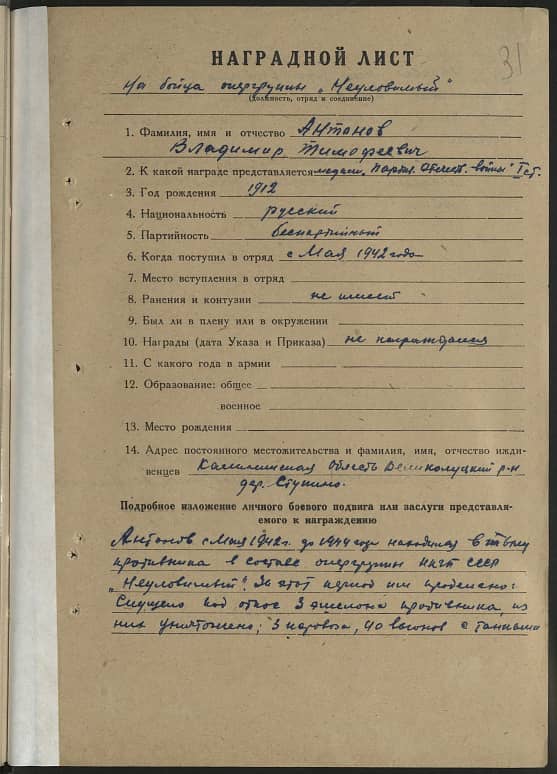 31
НАГРАДНОЙ ЛИСТ
на бойца опергруппы „Неуловимый"
(должность, отряд и соединение)
1. Фамилия, имя и отчество Антонов
Владимир Тимофеевич
2. К какой награде представляется медаль „Партиз. Отечест. войны" I ст.
3. Год рождения 1912
4. Национальность русский
5. Партийность беспартийный
6. Когда поступил в отряд с Мая 1942 года
7. Место вступления в отряд
8. Ранения и контузии не имеет
9. Был ли в плену или в окружении
10. Награды (дата Указа и Приказа) не награждался
11. С какого года в армии
12. Образование: общее
военное
13. Место рождения
14. Адрес постоянного местожительства и фамилия, имя, отчество ижди-
венцев Калининская Область Великолукский р-н
дер. Ступино.
Подробное изложение личного боевого подвига или заслуги представля-
емого к награждению
Антонов с Мая 1942 г. до 1944 года находился в тылу
противника в составе опергруппы НКГБ СССР
„Неуловимый". За этот период им проделано:
Спущено под откос 3 эшелона противника, из
них уничтожено; 3 паровоза, 40 вагонов с танками